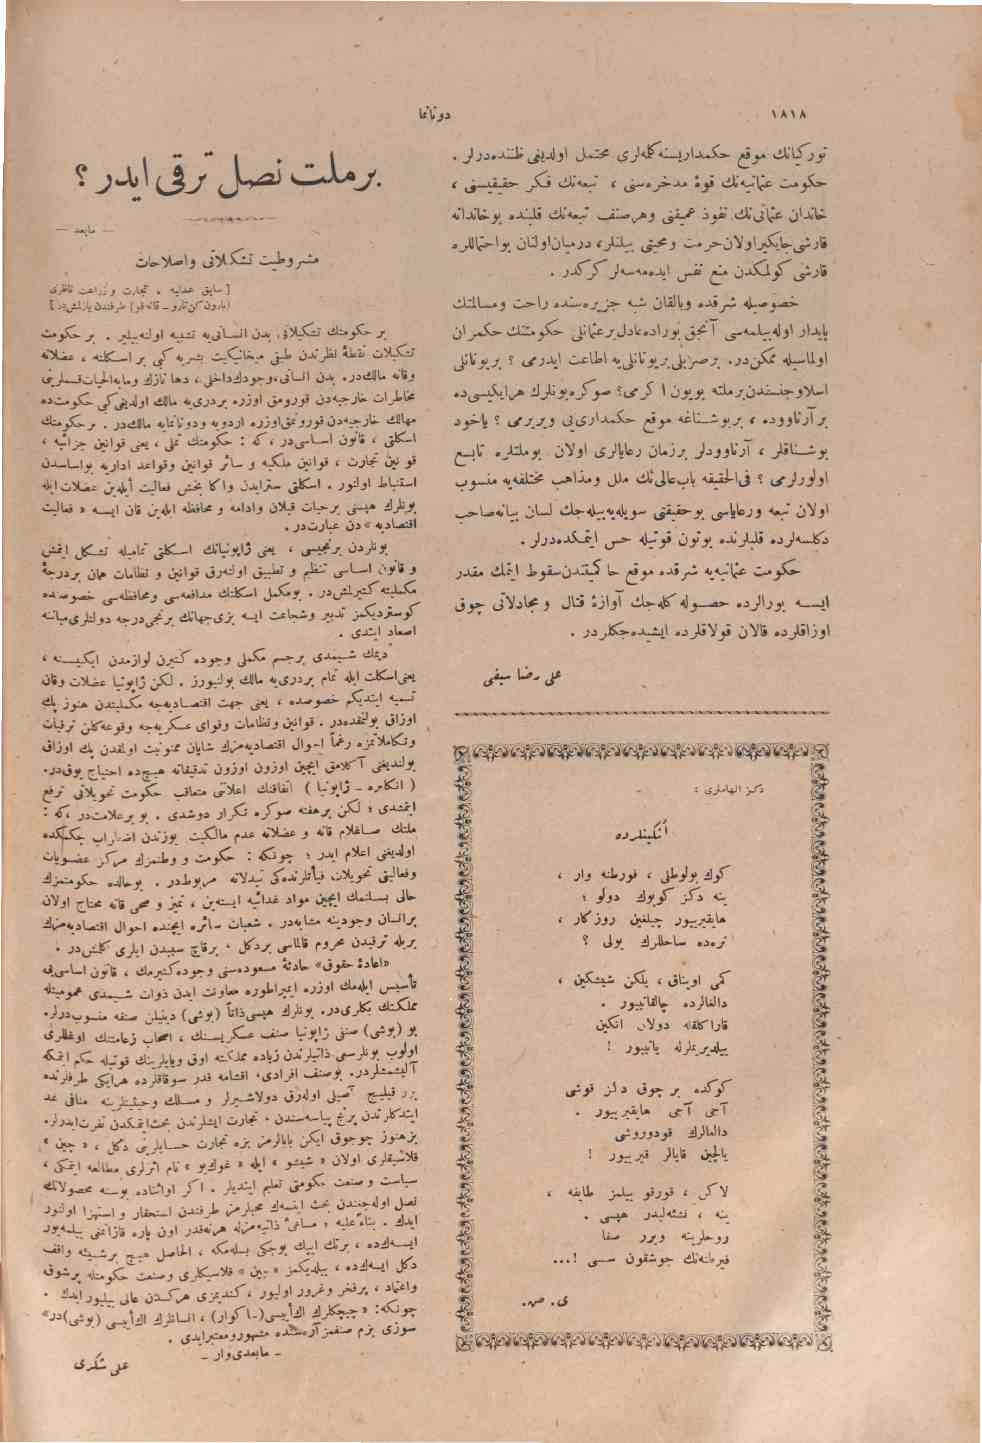 ١٨١٨
دوناما
تورکیانك موقع حکمداریسنه کله‌لری محتمل اولدیغی ظننده‌درلر .
حکومت عثمانیه‌نك قوهٔ مدخره‌سنی ، تبعه‌نك فکر حقیقیسنی ،
خاندان عثمانی‌نك نفوذ عمیقنی وهرصنف تبعه‌نك قلبنده بوخاندانه
قارشی جایکیر اولان حرمت ومحبتی بیلنلر، درمیان اولنان بواحتماللره
قارشی کولمکدن منع نفس ایده‌مه‌سه‌لر کرکدر .
خصوصیله شرقده وبالقان شبه جزیره‌سنده راحت ومسالمتك
پایدار اوله‌بیلمه‌سی آنجق بوراده عادل برعثمانلی حکومتنك حکمران
اولماسیله ممکن‌در. برصربلی بریونانلی‌یه اطاعت ایدرمی ؟ بریونانلی
اسلاوجنسندن برملته بویون اکرمی؟ صوکره بونلرك هرایکیسی‌ده
برآرناووده ، بربوشناغه موقع حکمداری‌یی ویررمی ؟ یاخود
بوشناقلر ، آرناوودلر برزمان رعایالری اولان بوملتلره تابع
اولورلرمی ؟ فی‌الحقیقه باب‌عالی‌نك ملل ومذاهب مختلفه‌یه منسوب
اولان تبعه ورعایاسی بوحقیقتی سویله‌یه‌بیله‌جك لسان بیانه صاحب
دکلسه‌لرده قلبلرنده بوتون قوتیله حس ایتمکده‌درلر .
حکومت عثمانیه‌یه شرقده موقع حاکمیتدن سقوط ایتمك مقدر
ایسه بورالرده حصوله کله‌جك آوازهٔ قتال و مجادلاتی چوق
اوزاقلرده قالان قولاقلرده ایشیده‌جکلردر .
علی رضا سیفی
دکز الهاملری :
أنکینلرده
کوك بولوطلی ، فورطنه وار ،
ینه دکز کوپوك دولو ؛
هایقیرییور چیلغین روزکار ،
نره‌ده ساحللرك یولی ؟
کمی اویناق ، یلکن شیشکین ،
دالغالرده چالقانییور .
قاراکلقله دولان انکین
ییلدیریملرله یانییور !
کوکده بر چوق دکز قوشی
آجی آجی هایقیرییور .
دالغالرك قودوروشی
یالچین قایالر قیرییور !
لاکن ، قورقو بیلمز طایفه ،
ینه ، نشئه‌لیدر هپسی .
روحلرینه ویرر صفا
فیرطنه‌نك جوشقون سسی !...
ی. ص.
برملت نصل ترقی ایدر ؟
— مابعد —
مشروطیت تشکیلاتی واصلاحات
[ سابق عدلیه ، تجارت وزراعت ناظری
(بارون کن‌تارو ـ قانه‌قو) طرفندن یازلمش‌در ]
بر حکومتك تشکیلاتی بدن انسانی‌یه تشبیه اولنه‌بیلیر . بر حکومت
تشکیلات نقطهٔ نظرندن طبقی میخانیکیت بشریه کبی بر اسکلته ، عضلاته
وقانه مالك‌در. بدن انسانی‌ وجودك داخلی ، دها نازك ومابه‌الحیات قسملرینی
مخاطرات خارجیه‌دن قورومق اوزره بردری‌یه مالك اولدیغی کبی حکومت‌ده
مهالك خارجیه‌دن قورونمق اوزره اردویه ودونانمایه مالك‌در . بر حکومتك
اسکلتی ، قانون اساسی‌در ، که : حکومتك تملی ، یعنی قوانین جزائیه ،
قوانین تجارت ، قوانین ملکیه و سائر قوانین وقواعد اداریه بواساسدن
استنباط اولنور . اسکلتی سترایدن واکا بخش فعالیت ایله‌ین عضلات ایله
بونلرك هپسنی برحیات قیلان وادامه و محافظه ایله‌ین قان ایسه « فعالیت
اقتصادیه » دن عبارت‌در .
بونلردن برنجیسی ، یعنی ژاپونیانك اسکلتی تمامیله تشکل ایتمش
و قانون اساسی تنظیم و تطبیق اولنه‌رق قوانین و نظامات همان بردرجهٔ
مکملیته کتیرلمش‌در . بومکمل اسکلتك مدافعه‌سی ومحافظه‌سی خصوصنده
کوستردیکمز تدبیر وشجاعت ایسه بزی‌جهانك برنجی‌درجه دولتلری‌میاننه
اصعاد ایتدی .
دیمك شیمدی برجسم مکملی وجوده کتیرن لوازمدن ایکیسنه ،
یعنی‌اسکلت ایله تمام بردری‌یه مالك بولنیورز . لکن ژاپونیا عضلات وقان
تسمیه ایتدیکم خصوصده ، یعنی جهت اقتصادیه‌جه مکملیتدن هنوز پك
اوزاق بولنقده‌در . قوانین ونظامات وقوای عسکریه‌جه وقوعه‌کلن ترقیات
وتکاملاتمزه رغماً احوال اقتصادیه‌مزك شایان ممنونیت اولمقدن پك اوزاق
بولندیغنی آکلامق ایچین اوزون اوزون تدقیقاته هیچ‌ده احتیاج یوقدر.
( انکلتره ـ ژاپونیا ) اتفاقنك اعلانی متعاقب حکومت تحویلاتی ترفع
ایتمشدی ؛ لکن برهفته صوکره تکرار دوشدی . بو برعلامت‌در ،که :
ملتك صاغلام قانه و عضلاته عدم مالکیت یوزندن اضطراب چکمکده
اولدیغنی اعلام ایدر ؛ چونکه : حکومت و وطنمزك مرکز عضویات
وفعالیتی تحویلات فیأتلرنده‌کی تبدلاته مربوط‌در . بوحالده حکومتمزك
حالی بسلنمك ایچین مواد غذائیه ایسته‌ین ، تمیز و صحی قانه محتاج اولان
برانسان وجودینه مشابه‌در . شعبات سائره ایچنده احوال اقتصادیه‌مزك
بریله ترقیدن محروم قالماسی بردکل ، برقاچ سببدن ایلری کلمش‌در .
«اعادهٔ حقوق» حادثهٔ مسعوده‌سنی وجوده‌کتیرمك ، قانون اساسی‌یی
تأسیس ایله‌مك اوزره ایمپراطوره معاونت ایدن ذوات شیمدی عمومیتله
مملکتك بکلری‌در. بونلرك هپسی ذاتاً (بوشی) دینیلن صنفه منسوب‌درلر.
بو (بوشی) صنفی ژاپونیا صنف عسکریسنك ، اصحاب زعامتك اوغللری
اولوب بونلرسی ذاتیلرندن زیاده مملکته اوق ویایلرینك قوتیله حکم ایتمکه
آلیشمشلردر. بوصنف افرادی، اقشامه قدر سوقاقلرده هرایکی طرفلرنده
برر قیلیچ آصیلی اوله‌رق دولاشیرلر و مسلك وحیثیتلرینه منافی عد
ایتدکلرندن پرنج پیاسه‌سندن ، تجارت ایشلرندن بحث‌ایتمکدن نفرت‌ایدرلر.
بزهنوز چوجوق ایکن بابالرمز بزه تجارت حسابلرینی دکل ، « چین »
قلاسیقلری اولان « شیشو » ایله « غوکیو » نام اثرلری مطالعه ایتمکی ،
سیاست و صنعت حکومتی تعلیم ایتدیلر . اکر اواثناده یوسنه محصولاتك
نصل اوله‌جغندن بحث ایتسه‌ك محبلرمز طرفندن استحقار و استهزا اولنور
ایدك . بناءً علیه ، مساعیٔ ذاتیه‌مزله هرنه‌قدر اون پاره قازانمغی بیلمه‌یور
ایسه‌ك‌ده ، برتك ایپك بوجکی بسله‌مکه ، الحاصل هیچ برشیئه واقف
دکل ایسه‌ك‌ده ، بیلدیکمز « چین » قلاسیکلری وصنعت حکومتله پرشوق
واغتماد ، پرفخر وغرور اولیور ، کندیمزی هرکسدن عالی بیلیور ایدك .
چونکه: «چیچکلرك اك‌أییسی(ـاکوار) ، انسانلرك اك‌أییسی (بوشی)در»
سوزی بزم صنفمز آره‌سنده مشهورومعتبرایدی .
ـ مابعدی‌وار ـ
علی شکری